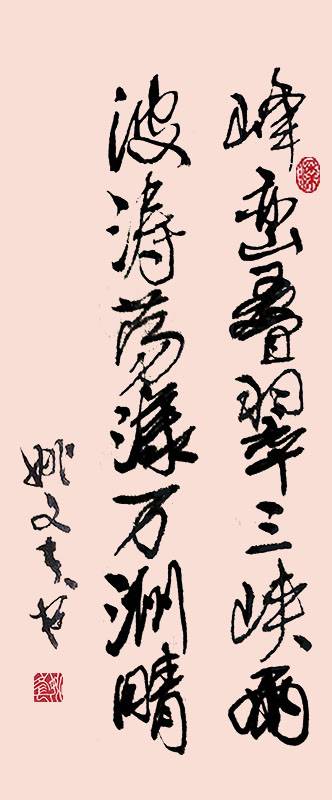 峰峦叠翠三峡雨
波涛荡漾万洲晴
姚文奎书